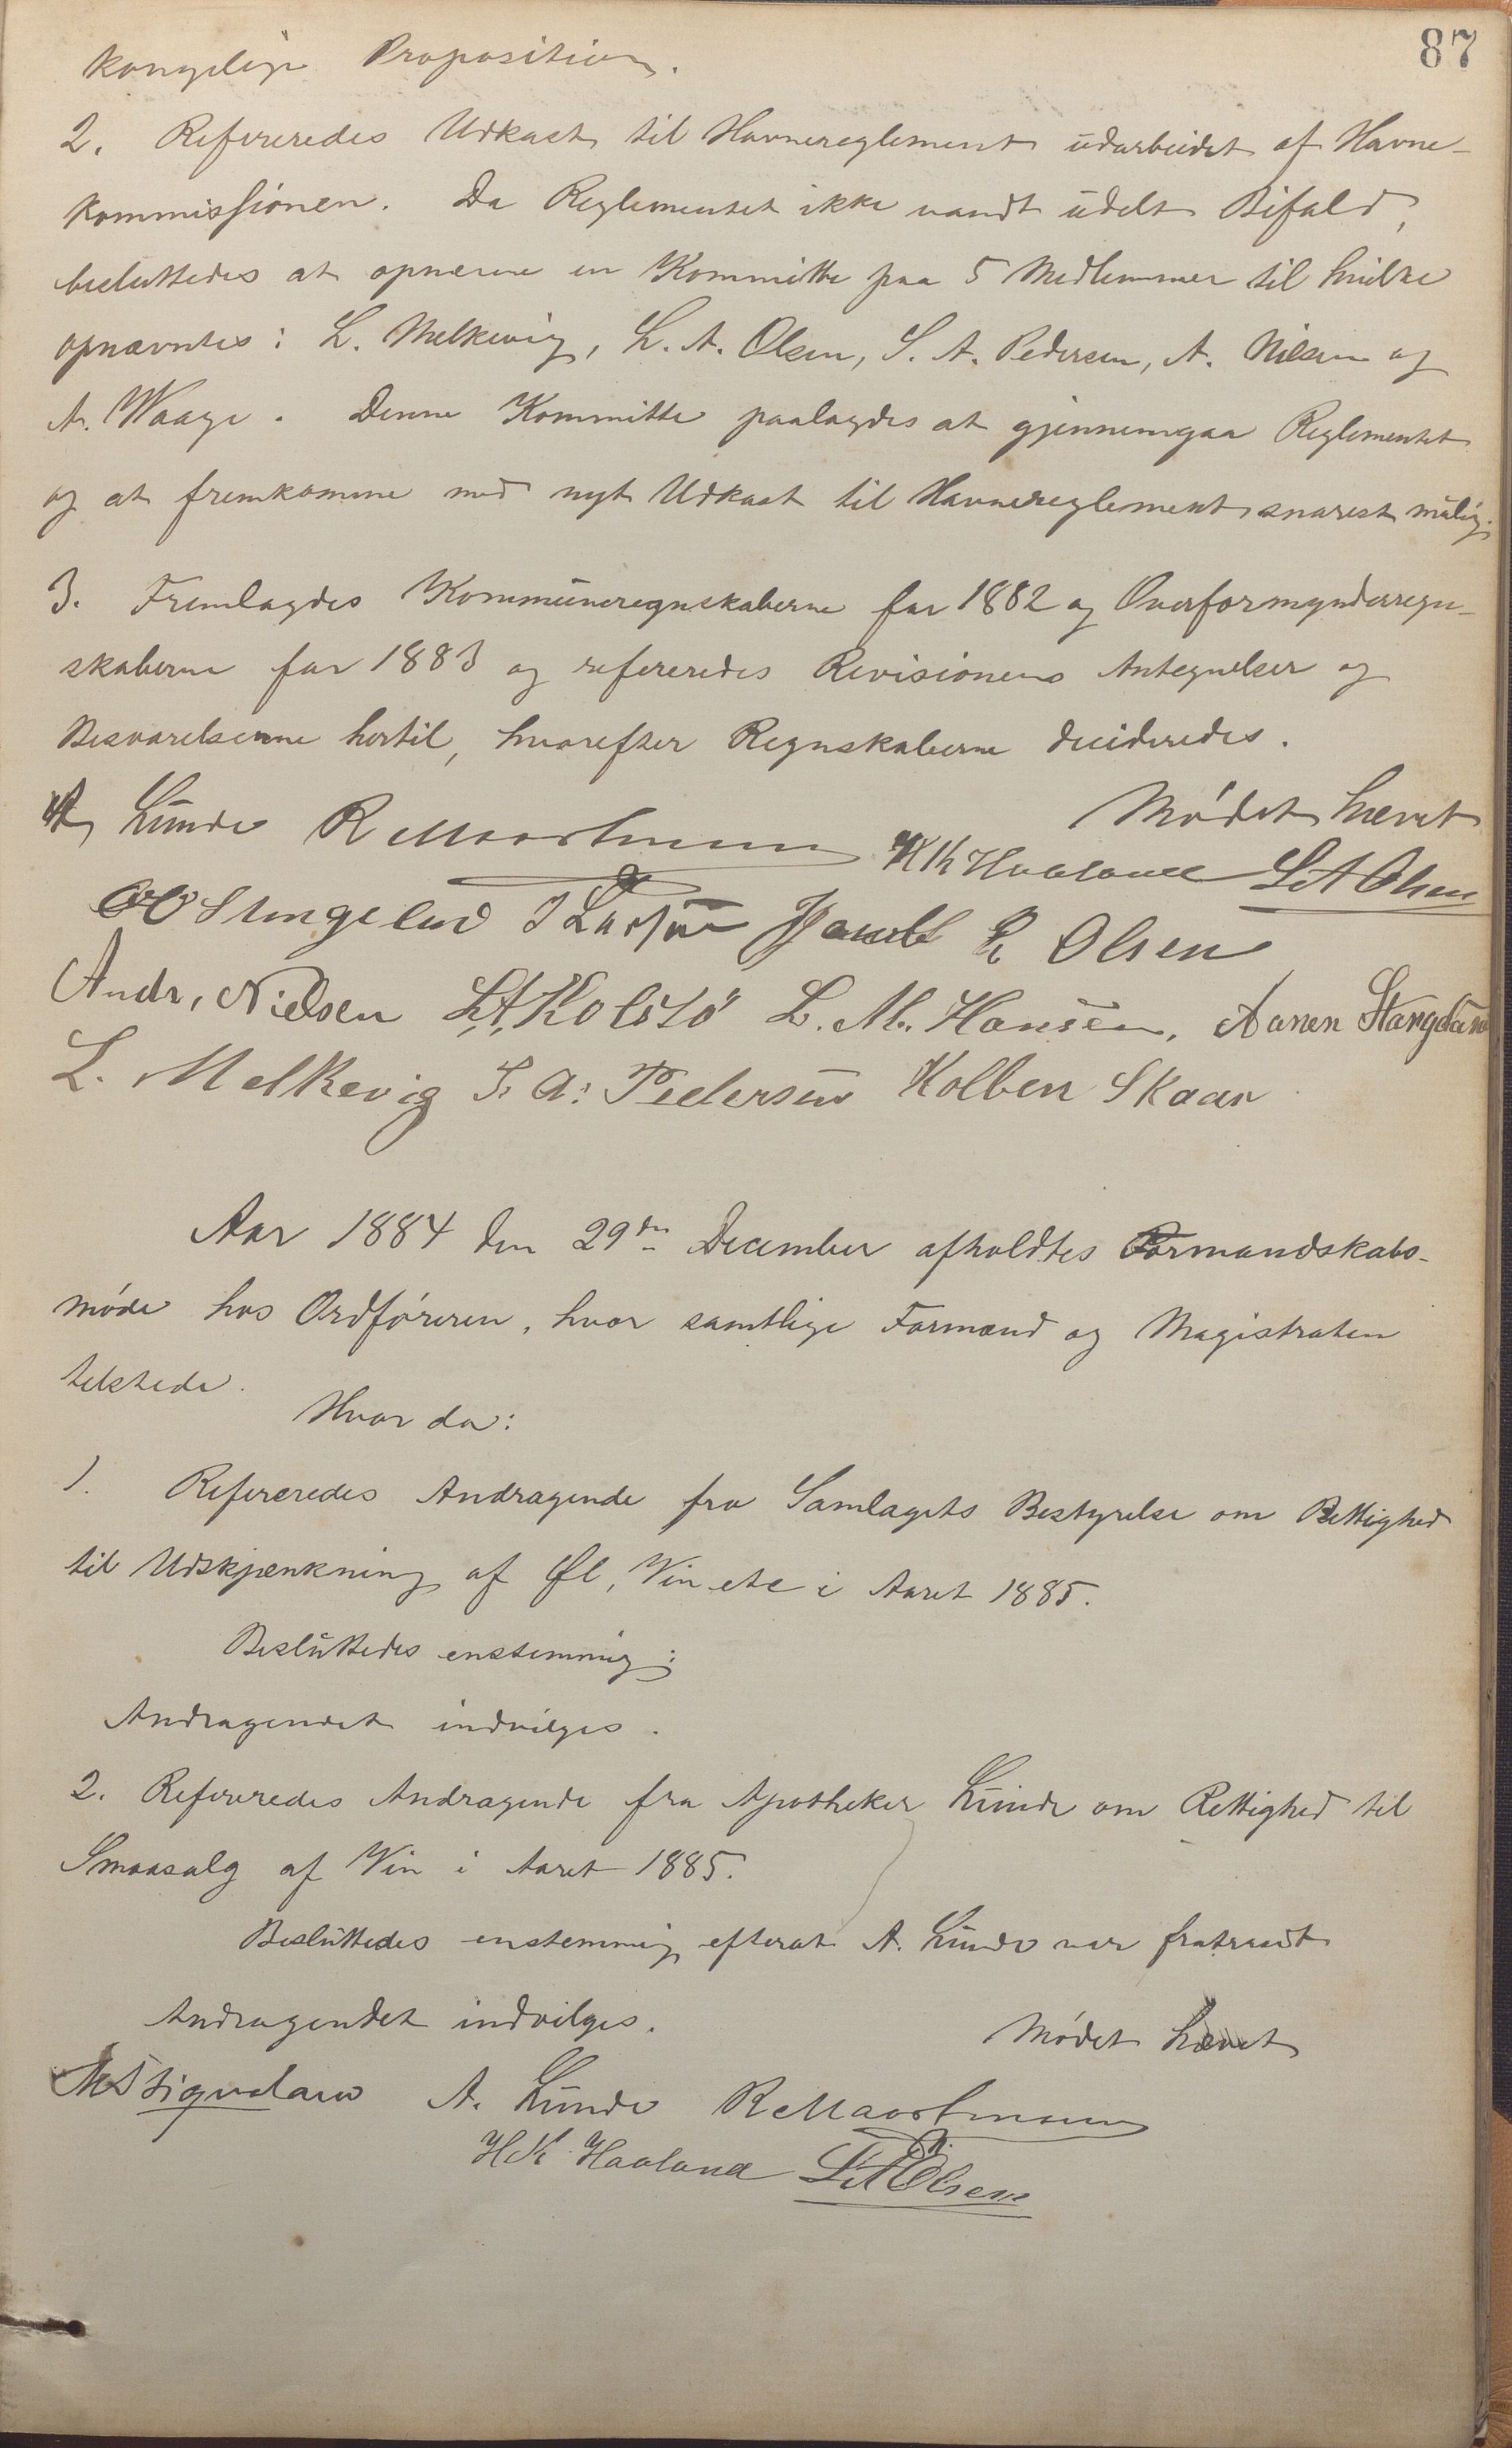 87
kongelige Proposition.
2. Refereredes Udkast til Havnereglement udarbeidet af Havne-
kommissionen. Da Reglementet ikke vandt udelt Bifald,
besluttedes at opnævne en Kommitte paa 5 Medlemmer til hvilke
opnævntes: L. Melkevig, L. A. Olsen, S. A. Pedersen, A. Nilsen og
A. Waage. Denne Kommitte paalagdes at gjennemgaa Reglementet
og at fremkomme med nyt Udkast til Havnereglement snarest mulig.
3. Fremlagdes Kommuneregnskaberne for 1882 og Overformynderregn-
skaberne for 1883 og refereredes Revisionens Antegnelser og
Besvarelserne hertil, hvorefter Regnskaberne decideredes.
Mødet hævet
A Lunde R Maartmann H Kr Haaland L A Olsen
Stangeland I Larsen Jacob R Olsen
Andr. Nielsen L. A. Kolstø L. M. Hansen. Aanen Stangeland
L. Melkevig S. A. Pedersen Kolben Skaar
Aar 1884 den 29de December afholdtes Formandskabs-
møde hos Ordføreren, hvor samtlige Formænd og Magistraten
tilstede.
Hvor da:
1. Refereredes Andragende fra Samlagets Bestyrelse om Rettighed
til Udskjænkning af Øl, Vin etc i Aaret 1885.
Besluttedes enstemmig:
Andragendet indvilges.
2. Refereredes Andragende fra Apotheker Lunde om Rettighed til
Smaasalg af Vin i Aaret 1885.
Besluttedes enstemmig efterat A. Lunde var fratraadt
Andragendet indvilges.
Mødet hævet
A. Lunde R Maartmann
H Kr Haaland L A Olsen